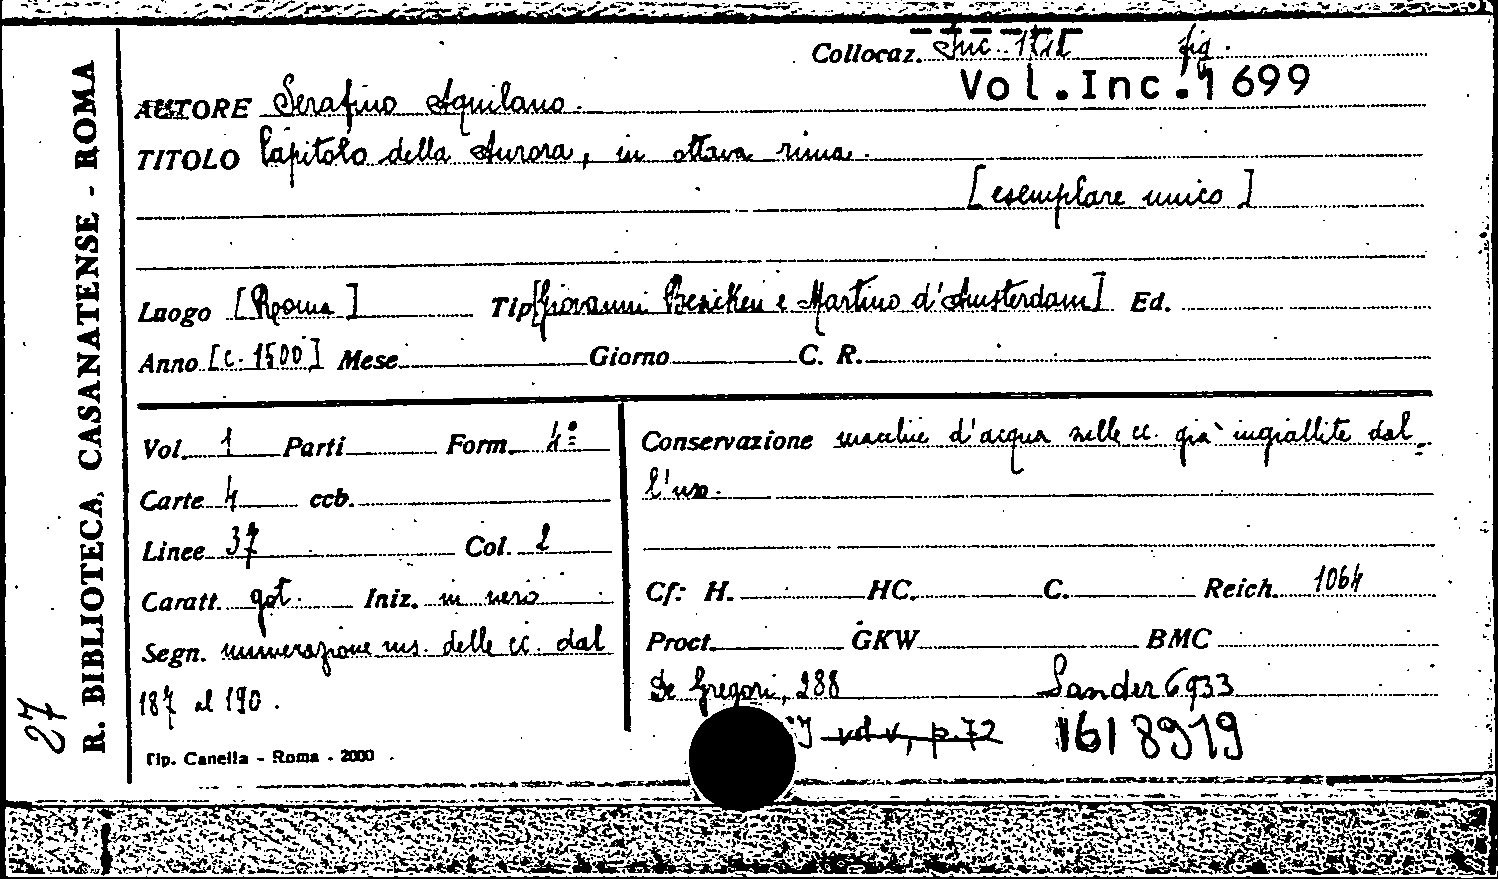 Collocaz. Inc. 1111 fig.
Vol.Inc.1699
AUTORE Serafino Aquilano.
TITOLO Capitolo della Aurora, in ottava rima.
[esemplare unico]
Luogo [Roma] Tip[Giovanni Besicken e Martino d'Amsterdam] Ed.
Anno [c. 1500] Mese Giorno C. R.
Vol. 1 Parti Form. 4º
Carte 4 ccb.
Linee 37 Col. 2
Caratt. got. Iniz. in nero
Segn. numerazione ms. delle cc. dal
187 al 190.
Tip. Canella - Roma - 2000
Conservazione macchie d'acqua nelle cc. già ingiallite dal=
l'uso.
Cf: H. HC. C. Reich. 1064
Proct. GKW BMC
De Gregori, 288 Sander 6933
IGI vd v, p. 72 IGI 8919
R. BIBLIOTECA CASANATENSE - ROMA
27